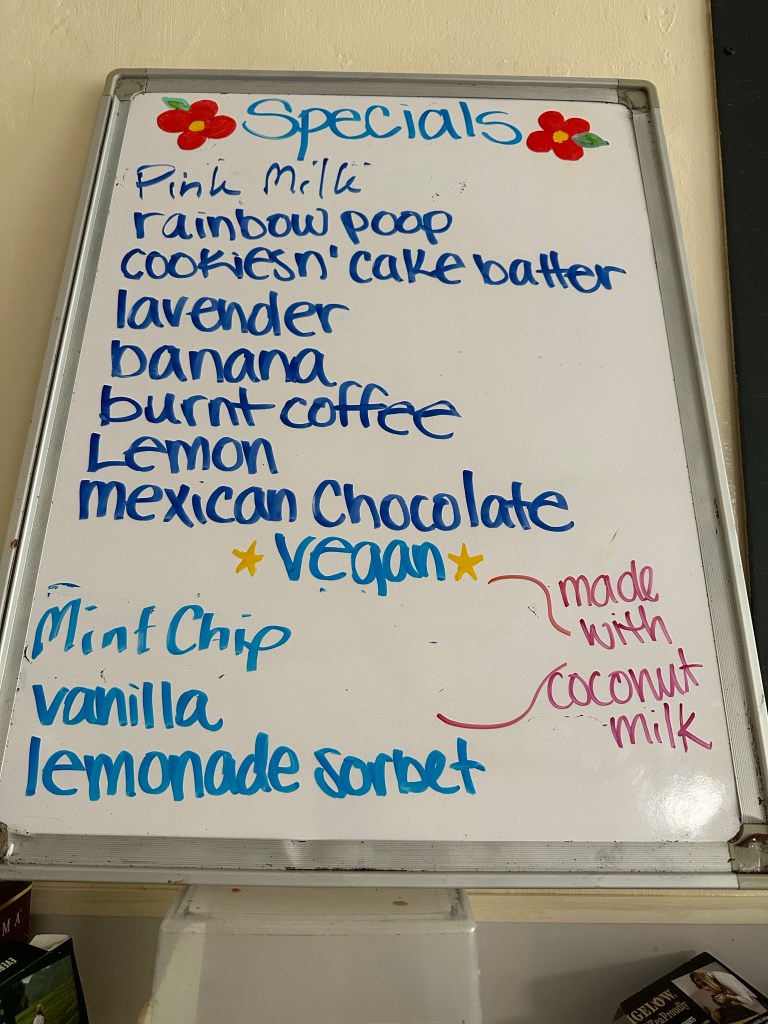 Specials
Pink Milk
rainbow poop
cookiesn' cake batter
lavender
banana
burnt coffee
Lemon
mexican Chocolate
vegan
made
with
coconut
milk
Mint Chip
vanilla
lemonade sorbet
MA
EVER
IGELOW
TeaProudly